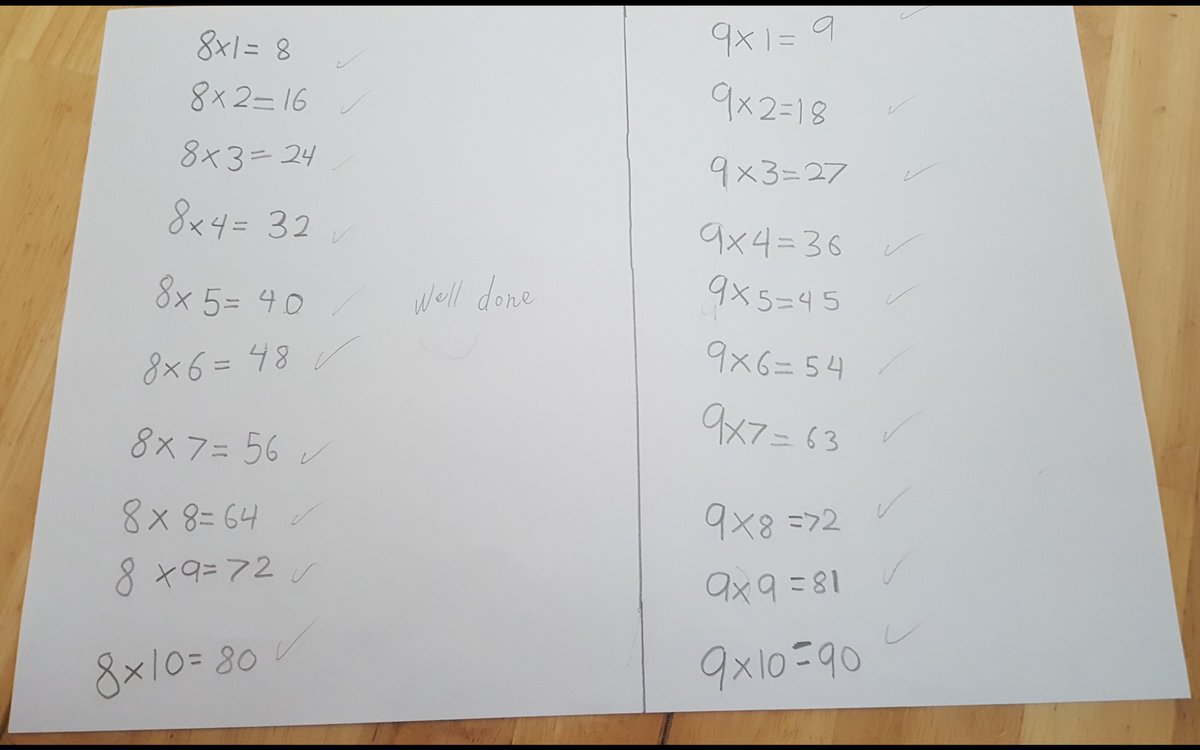 8×1= 8
8×2=16
8×3= 24
8×4= 32
8×5= 40
8×6= 48
8×7= 56
8×8=64
8×9=72
8×10=80
Well done
9×1= 9
9×2=18
9×3=27
9×4=36
9×5=45
9×6=54
9×7=63
9×8=72
9×9=81
9×10=90